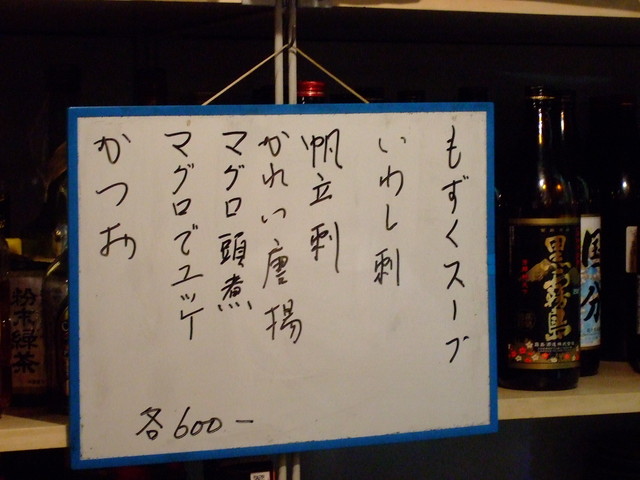 もずくスープ
いわし刺
帆立刺
かれい唐揚
マグロ頭煮
マグロでユッケ
かつお
各600-
黒霧島
国分
粉末緑茶